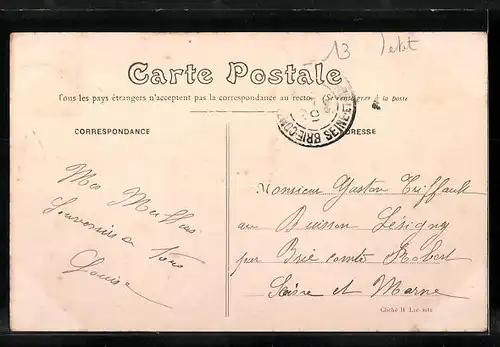 13
Carte Postale
Tous les pays étrangers n'acceptent pas la correspondance au recto (Se renseigner à la poste
CORRESPONDANCE
ADRESSE
BRIE-COM
SEINE-ET
Mes Meilleurs
Souvenirs a Tous
Louise
Monsieur Gaston Triffault
au Buisson Lésigny
par Brie comte Robert
Seine et Marne
Cliché H